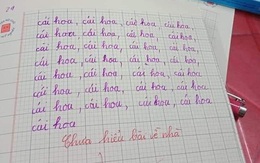 cái hoa, cái hoa, cái hoa, cái hoa,
cái hoa, cái hoa, cái hoa, cái hoa,
cái hoa, cái hoa, cái hoa, cái hoa,
cái hoa, cái hoa, cái hoa, cái hoa,
cái hoa, cái hoa, cái hoa, cái hoa,
cái hoa, cái hoa, cái hoa, cái hoa,
cái hoa, cái hoa, cái hoa, cái hoa,
cái hoa
Chưa hiểu bài về nhà